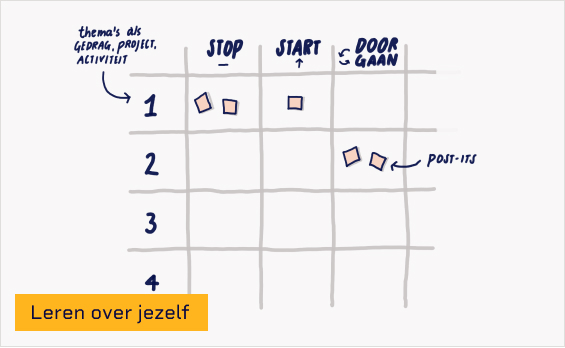 thema's als
GEDRAG, PROJECT,
ACTIVITEIT
STOP
START
DOOR
GAAN
1
2
POST-ITS
3
4
Leren over jezelf